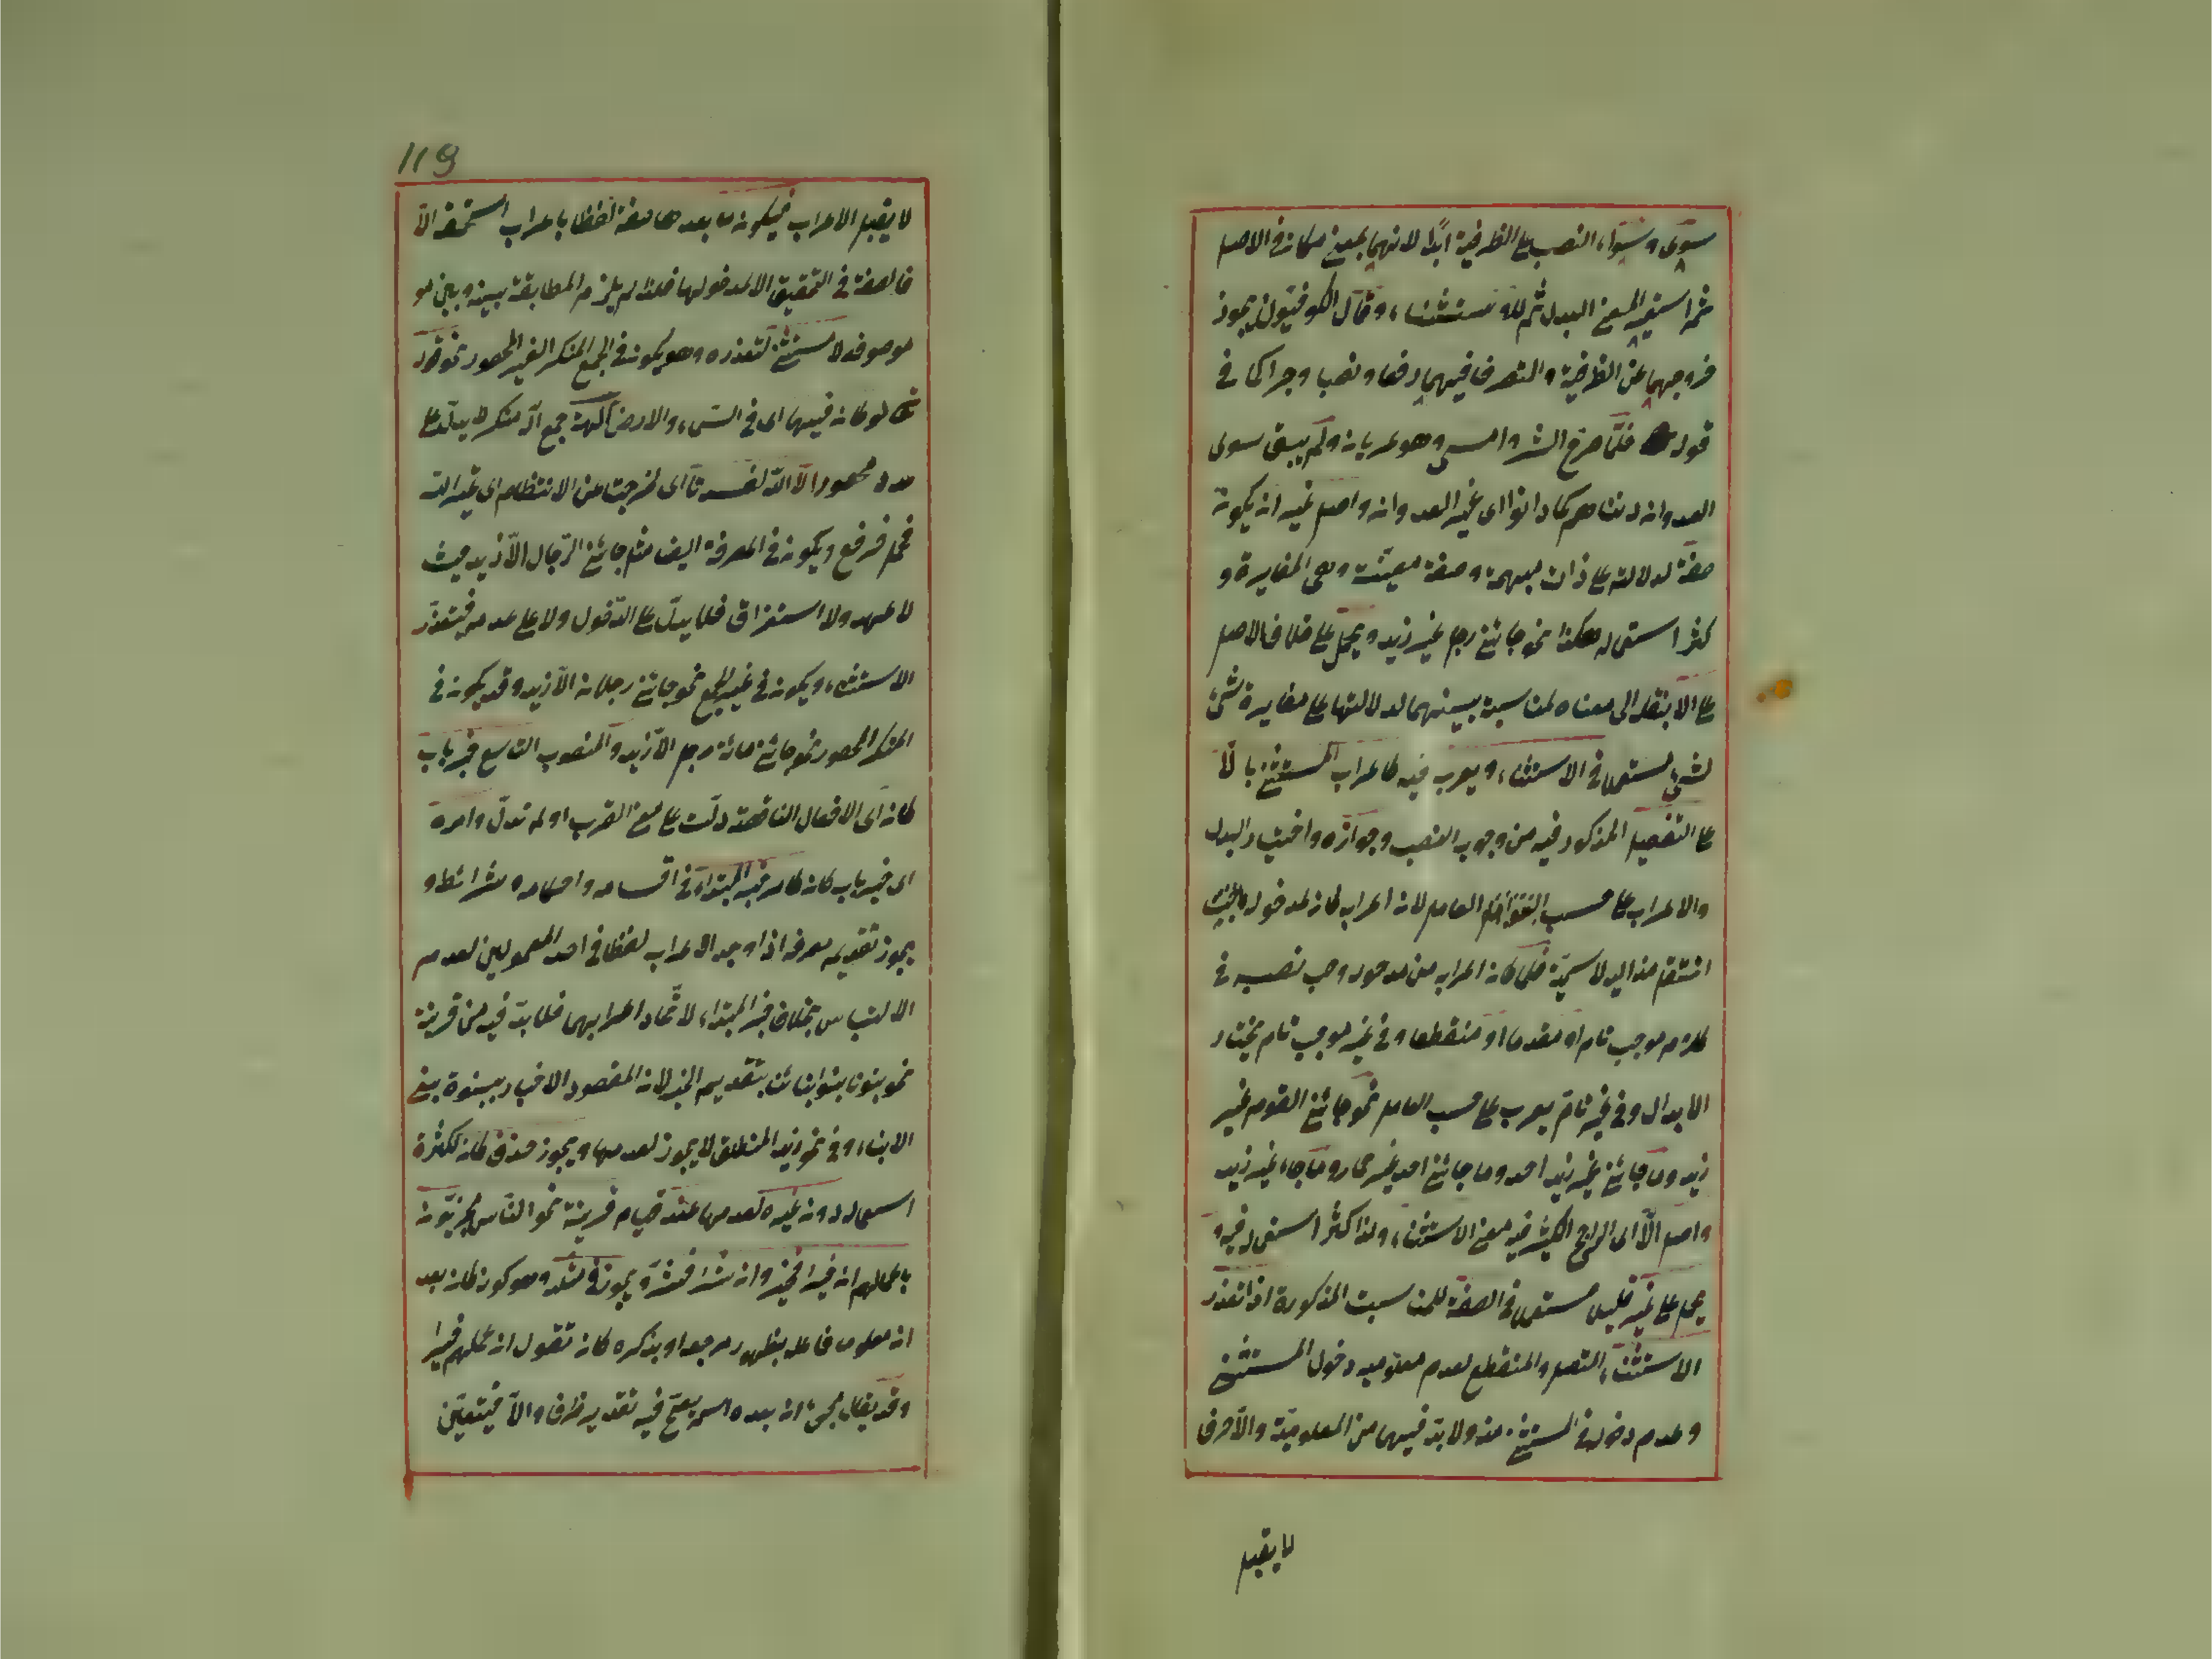 سوى وسواء النصب على الظرفية ابدًا لانهما بمعنى مكان في الاصل
ثم استعير لمعنى البدل ثم للاستثناء وقال الكوفيون يجوز
خروجهما عن الظرفية والتصرف فيهما رفعا ونصبا وجرا كما في
قوله فلمّا صرح الشر وامسى وهو عريان ولم يبق سوى
العدوان دناهم كما دانوا اى غير العدوان واصل غير ان يكون
صفة لدلالته على ذات مبهمة وصفة معينة وهى المغايرة و
كثر استعماله هكذا نحو جائنى رجل غير زيد ويحمل على خلاف الاصل
على الاّ بنقله الى معناه لمناسبة بينهما لدلالتها على مغايرة شئ
لشئ مستعملا في الاستثناء ويعرب فيه كاعراب المستثنى بالاّ
على التفصيل المذكور فيه من وجوب النصب وجوازه واختيار البدل
والاعراب على حسب العامل لان اعراب كان لمدخوله
انتقل منه اليه لاسميّة فلما كان اعرابه من مدخوله وجب نصبه في
كلام موجب تام او مقدما او منقطعا وفي غير موجب تام يختار
الابدال وفي غير تام يعرب على حسب العامل نحو جائنى القوم غير
زيد وما جائنى غير زيد احد وما جائنى احد غير حمار وما جاء غير زيد
واصل الاّ اى الراجح الكثير فيه معنى الاستثناء ولذا كثر استعماله فيه و
يحمل على غير قليلا مستعملا في الصفة للمناسبة المذكورة اذا تعذر
الاستثناء المتصل والمنقطع لعدم معلومية دخول المستثنى
وعدم دخوله في المستثنى منه ولا بدّ فيهما من المعلوميّة والاّ حرف
لا يقبل
119
لا يقبل الاعراب فيكون ما بعدها صفة لفظا باعراب استحقه الاّ
فالصفة في التحقيق الا لمدخولها فلذا لم يلزم المطابقة بينه وبين مو
موصوفه لا مستثنى لتعذره وهو يكون في الجمع المنكر الغير المحصور نحو قوله
تعالى لو كان فيهما اى في السماء والارض آلهة جمع اله منكر لا يدلّ على
عدد محصور الاّ اللّه لفسدتا اى لخرجتا عن الانتظام اى غير اللّه
فحمل فرفع ويكون في المعرفة ايضا مثل جائنى الرّجال الاّ زيد حيث
لا عهد ولا استغراق فلا يدلّ على الدّخول ولا على عدمه فيتعذّر
الاستثناء ويكون في غير الجمع نحو جائنى رجلان الاّ زيد وقد يكون في
المنكر المحصور نحو جائنى مائة رجل الاّ زيد والمنصوب التاسع خبر باب
كان اى الافعال الناقصة دلّت على معنى القرب او لم تدلّ وامره
اى خبر باب كان كامر خبر المبتداء في اقسامه واحكامه وشرائطه و
يجوز تقديمه معرفة اذا وجد الاعراب لفظا في احد المعمولين لعدم
الالتباس بخلاف خبر المبتداء لاتّحاد اعرابهما فلا بدّ فيه من قرينة
نحو بنونا بنوا ابنائنا بتقديم الخبر لان المقصود الاخبار ببنوة بنى
الابناء وفي نحو زيد المنطلق لا يجوز لعدمها ويجوز حذف كان لكثرة
استعماله دون غيره لعدمها عند قيام قرينة نحو النّاس مجزيّون
باعمالهم ان خيرا فخير وان شرا فشرّ ويجوز في مثله وهو كون كان بعد
ان معلوما فاعله بظهور مرجعه او بذكره كان تقول ان عملهم خيرا
وقد يقال مجئ ان بعده اسم يصحّ فيه تقدير ظرف والاّ فيتعيّن